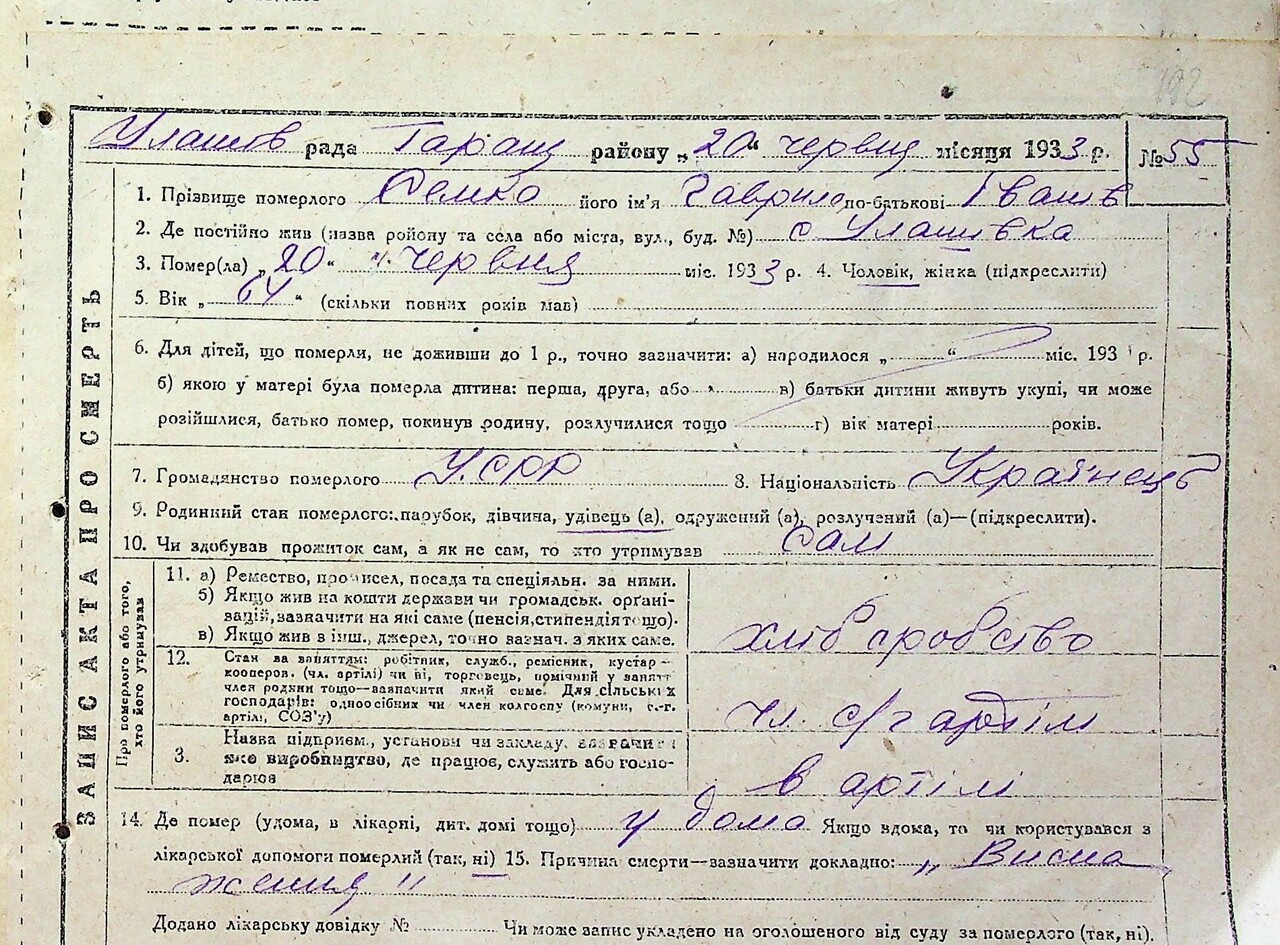 192
Улашів рада Таращ району „20“ червня місяця 1933 р. №55
ЗАПИС АКТА ПРО СМЕРТЬ
1. Прізвище померлого Семко його ім'я Гаврило по-батькові Іванів
2. Де постійно жив (назва району та села або міста, вул., буд. №) с Улашівка
3. Помер(ла) „20“ червня міс. 1933 р. 4. Чоловік, жінка (підкреслити)
5. Вік „64“ (скільки повних років мав)
6. Для дітей, що померли, не доживши до 1 р., точно зазначити: а) народилося „ “ міс. 193 р.
б) якою у матері була померла дитина: перша, друга, або в) батьки дитини живуть укупі, чи може
розійшлися, батько помер, покинув родину, розлучилися тощо г) вік матері років.
7. Громадянство померлого УСРР 8. Національність Українець
9. Родинний стан померлого: парубок, дівчина, удівець (а), одружений (а), розлучений (а)—(підкреслити).
10. Чи здобував прожиток сам, а як не сам, то хто утримував сам
Про померлого або того, хто його утримував
11. а) Ремество, промисел, посада та спеціяльн. за ними.
б) Якщо жив на кошти держави чи громадськ. орґані-
зацій, зазначити на які саме (пенсія, стипендія тощо).
в) Якщо жив з інш. джерел, точно вазнач. з яких саме.
хліборобство
12. Стан за заняттям: робітник, служб., ремісник, кустар-
кооперов. (чл. артілі) чи ні, торговець, помічний у занятт
член родини тощо—зазначити який саме. Для сільських
господарів: одноосібних чи член колгоспу (комуни, с.-г.
артілі, СОЗ'у)
чл. с/г артіли
3. Назва підприєм., установи чи закладу, зазначити
яке виробництво, де працює, служить або госпо-
дарює
в артілі
14. Де помер (удома, в лікарні, дит. домі тощо) у дома Якщо вдома, то чи користувався з
лікарської допомоги померлий (так, ні) 15. Причина смерти—зазначити докладно: „Висна
ження"
Додано лікарську довідку № Чи може запис укладено на оголошеного від суду за померлого (так, ні).